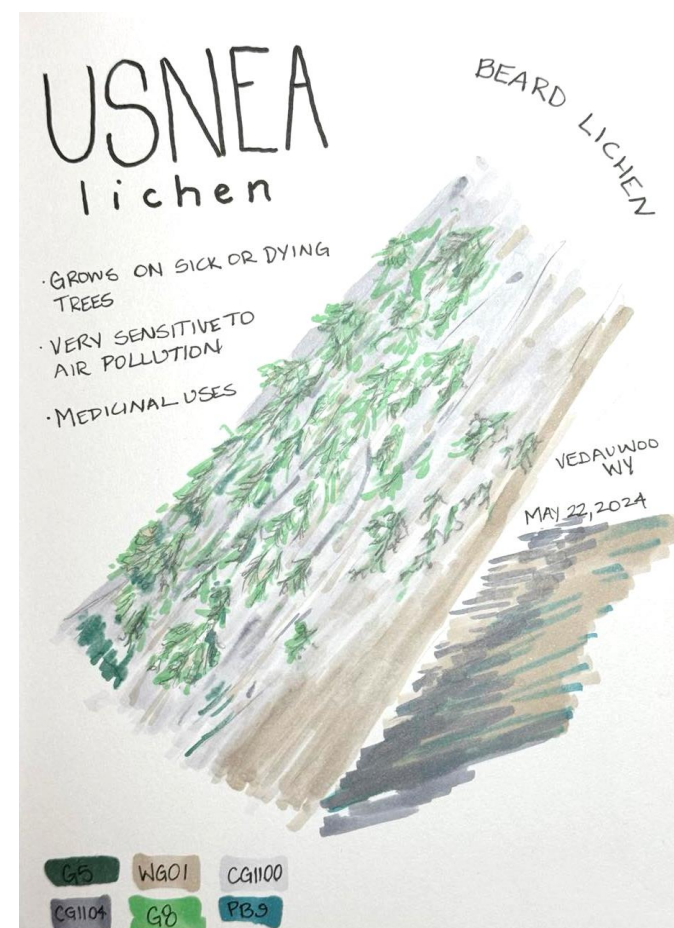 USNEA
lichen
BEARD LICHEN
· GROWS ON SICK OR DYING
TREES
· VERY SENSITIVE TO
AIR POLLUTION
· MEDICINAL USES
VEDAUWOO
WY
MAY 22, 2024
G5 WG01 CG1100
CG1104 G8 PB9